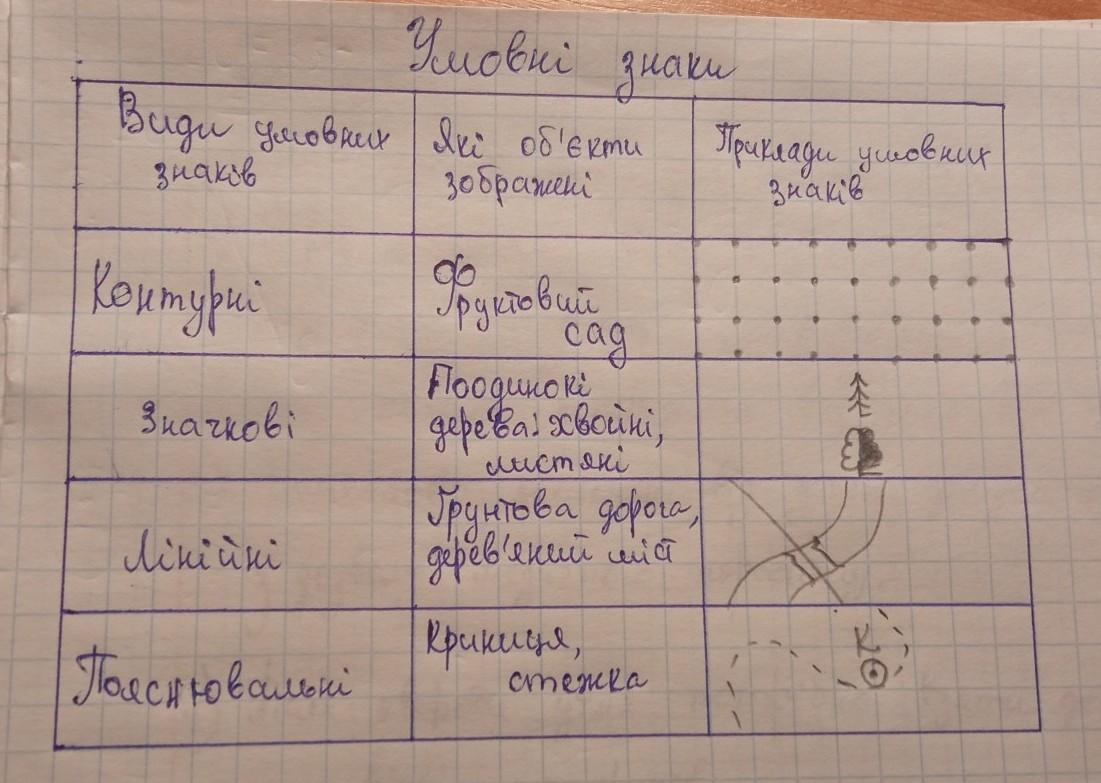 Умовні знаки
Види умовних
знаків
Які об'єкти
зображені
Приклади умовних
знаків
Контурні
Фруктовий
сад
Значкові
Поодинокі
дерева: хвойні,
листяні
Лінійні
Ґрунтова дорога,
дерев'яний міст
Пояснювальні
Криниця,
стежка
К